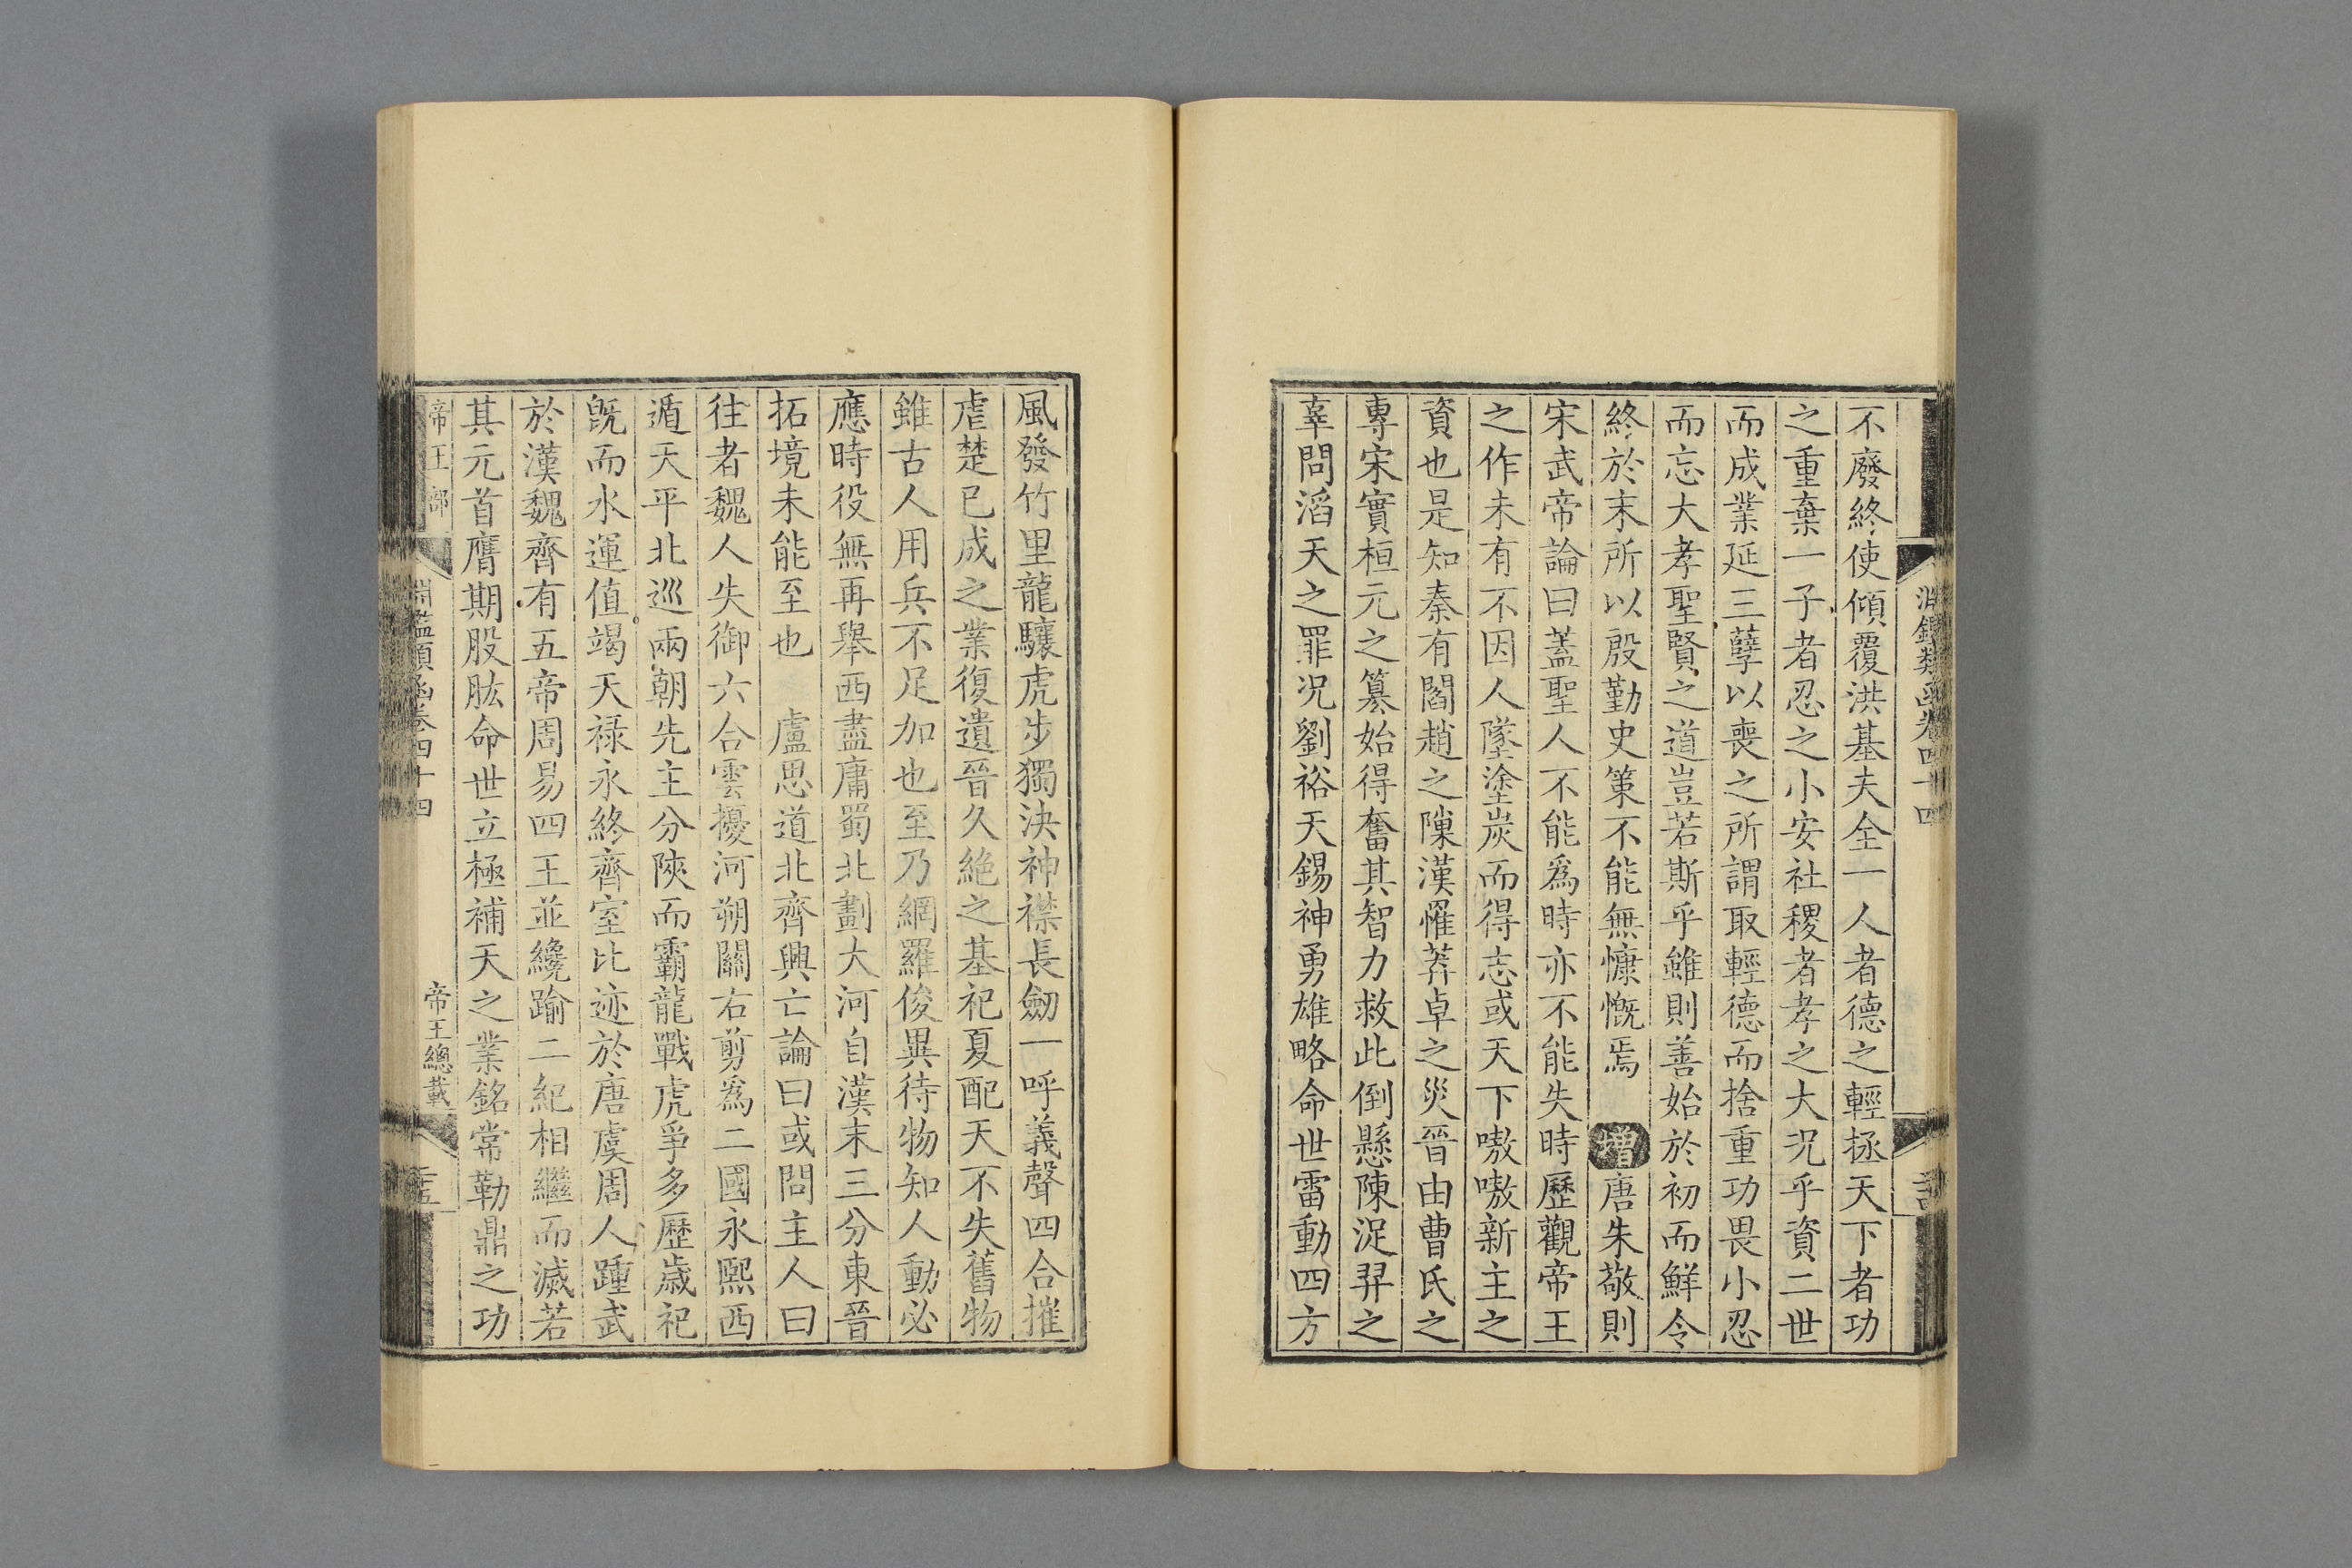 淵鑑類函卷四十四
不廢終使傾覆洪基夫全一人者德之輕拯天下者功
之重棄一子者忍之小安社稷者孝之大况乎資二世
而成業延三孽以喪之所謂取輕德而捨重功畏小忍
而忘大孝聖賢之道豈若斯乎雖則善始於初而鮮令
終於末所以殷勤史策不能無慷慨焉 增唐朱敬則
宋武帝論曰蓋聖人不能爲時亦不能失時歷觀帝王
之作未有不因人墜塗炭而得志或天下嗷嗷新主之
資也是知秦有閻趙之隟漢罹莽卓之災晉由曹氏之
專宋實桓元之篡始得奮其智力救此倒懸陳浞羿之
辜問滔天之罪况劉裕天錫神勇雄略命世雷動四方
風發竹里龍驤虎步獨決神襟長劒一呼義聲四合摧
虐楚已成之業復遺晉久絶之基祀夏配天不失舊物
雖古人用兵不足加也至乃網羅俊異待物知人動必
應時役無再舉西盡庸蜀北劃大河自漢末三分東晉
拓境未能至也 盧思道北齊興亡論曰或問主人曰
往者魏人失御六合雲擾河朔關右剪爲二國永熙西
遁天平北巡兩朝先主分陝而霸龍戰虎爭多歷歲祀
旣而水運值竭天禄永終齊室比迹於唐虞周人踵武
於漢魏齊有五帝周易四王並纔踰二紀相繼而滅若
其元首膺期股肱命世立極補天之業銘常勒鼎之功
帝王部 淵鑑類函卷四十四 帝王總載 二十五